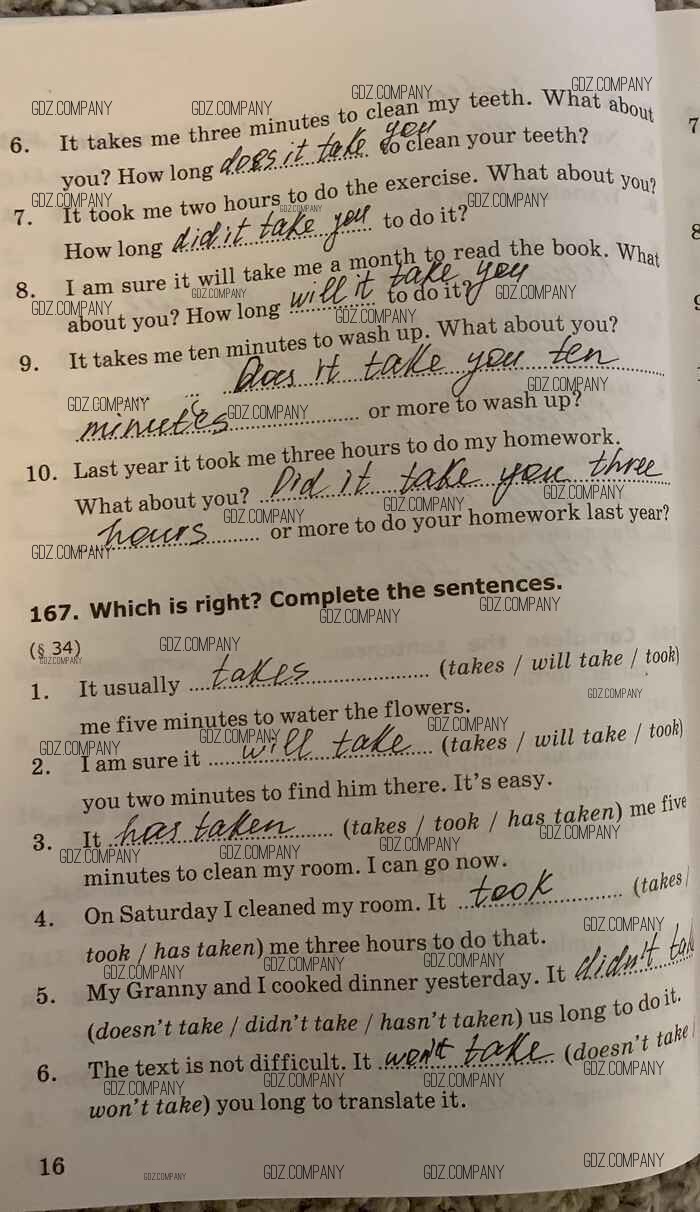 6. It takes me three minutes to clean my teeth. What about
you? How long does it take you to clean your teeth?
7. It took me two hours to do the exercise. What about you?
How long did it take you to do it?
8. I am sure it will take me a month to read the book. What
about you? How long will it take you to do it?
9. It takes me ten minutes to wash up. What about you?
Does it take you ten
minutes or more to wash up?
10. Last year it took me three hours to do my homework.
What about you? Did it take you three
hours or more to do your homework last year?
167. Which is right? Complete the sentences.
(§ 34)
1. It usually takes (takes / will take / took)
me five minutes to water the flowers.
2. I am sure it will take (takes / will take / took)
you two minutes to find him there. It's easy.
3. It has taken (takes / took / has taken) me five
minutes to clean my room. I can go now.
4. On Saturday I cleaned my room. It took (takes /
took / has taken) me three hours to do that.
5. My Granny and I cooked dinner yesterday. It didn't tak
(doesn't take / didn't take / hasn't taken) us long to do it.
6. The text is not difficult. It won't take (doesn't take /
won't take) you long to translate it.
16
GDZ.COMPANY